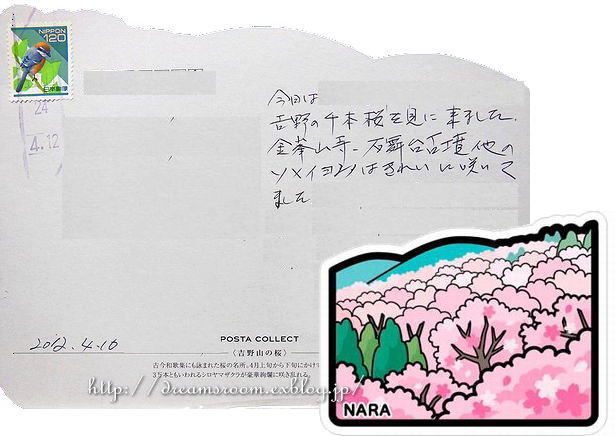 NIPPON
120
日本郵便
24
4.12
今日は
吉野の千本桜を見に来ました.
金峯山寺-石舞台古墳他の
ソメイヨシノはきれいに咲いて
ました
2012.4.10
POSTA COLLECT
〈吉野山の桜〉
古今和歌集にも詠まれた桜の名所。4月上旬から下旬にかけて
3万本ともいわれるシロヤマザクラが豪華絢爛に咲き乱れる。
http://dreamsroom.exblog.jp/
NARA